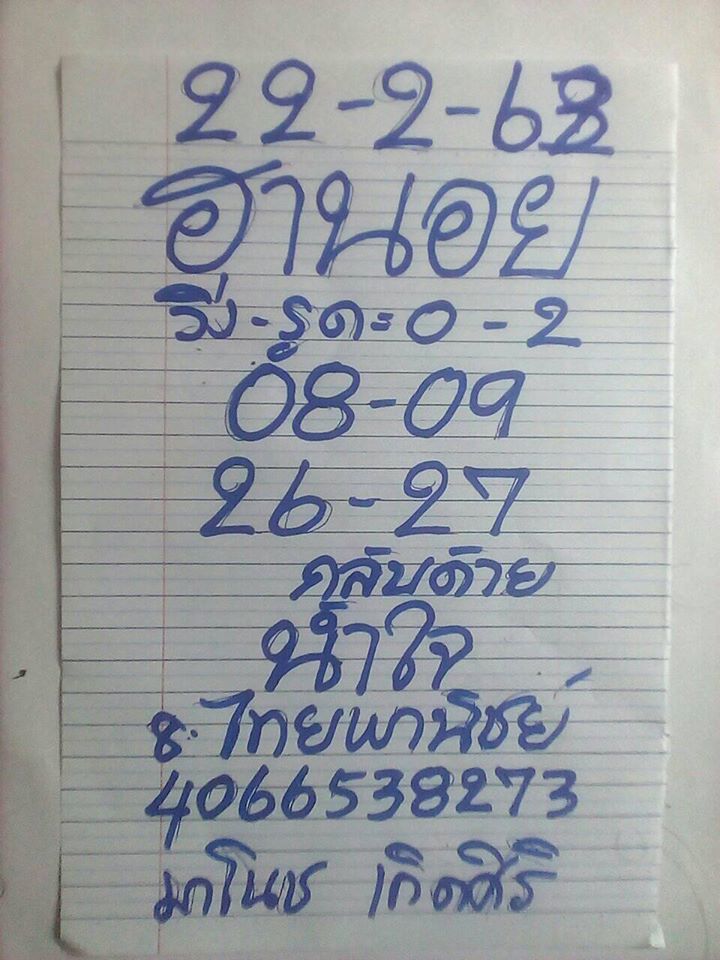 22-2-63
ฮานอย
วิ่ง-รูด=0-2
08-09
26-27
กลับด้วย
น้ำใจ
ธ.ไทยพานิชย์
4066538273
มาโนช เกิดศิริ